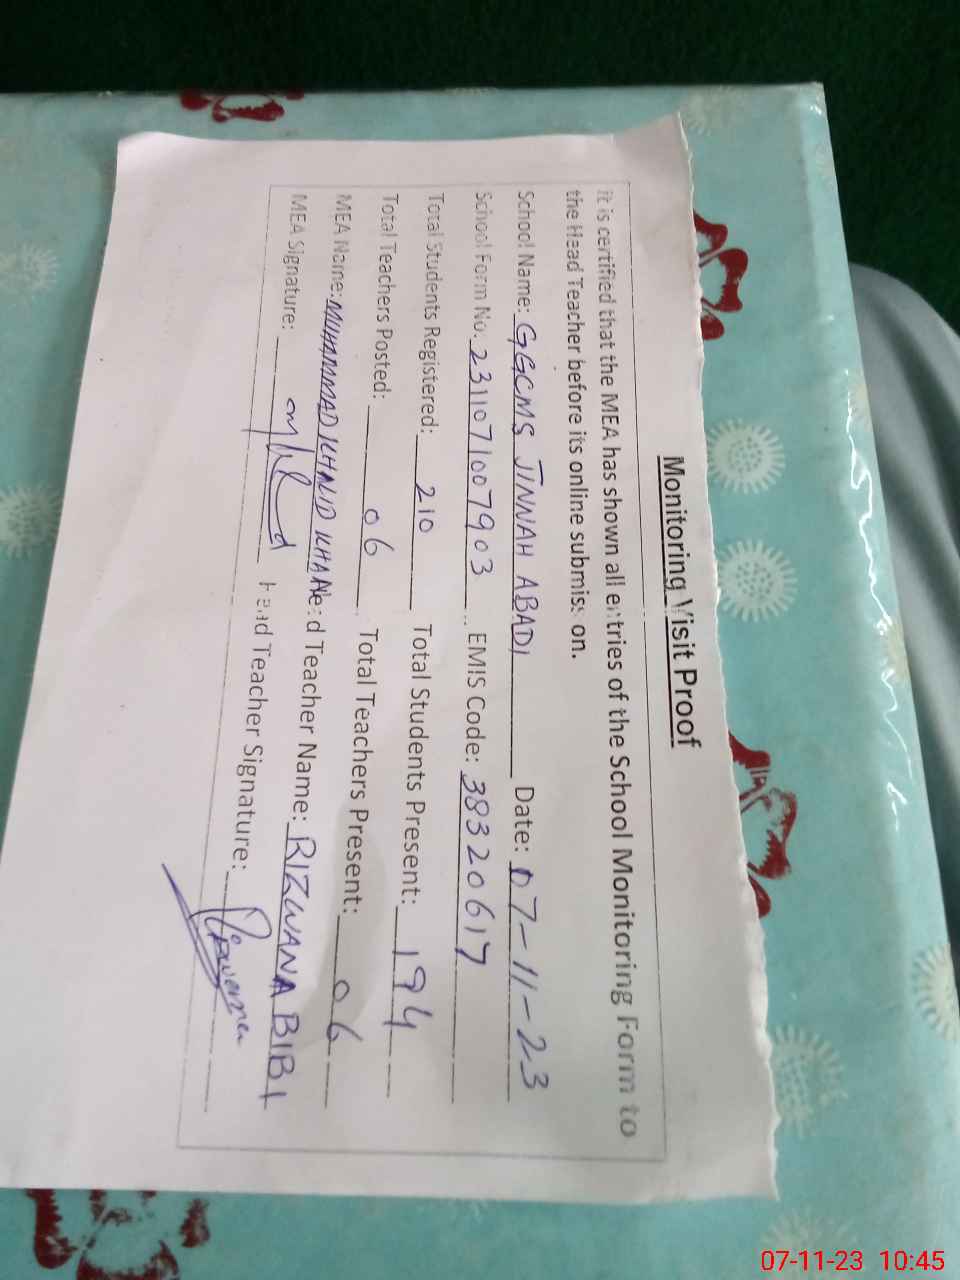 Monitoring Visit Proof
It is certified that the MEA has shown all entries of the School Monitoring Form to
the Head Teacher before its online submission.
School Name: GGCMS JINNAH ABADI Date: 07-11-23
School Form No. 2311071007903 EMIS Code: 38320617
Total Students Registered: 210 Total Students Present: 194
Total Teachers Posted: 06 Total Teachers Present: 06
MEA Name: MUHAMMAD KHALID KHAN Head Teacher Name: RIZWANA BIBI
MEA Signature: Head Teacher Signature:
07-11-23 10:45